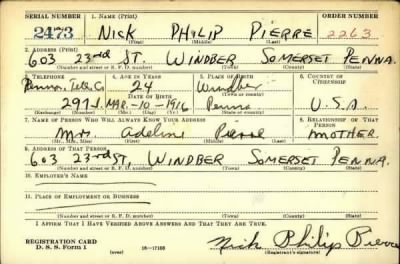 SERIAL NUMBER 1. NAME (Print) ORDER NUMBER
2473 NICK PHILIP PIERRE 2263
(First) (Middle) (Last)
2. ADDRESS (Print)
603 23rd ST. WINDBER SOMERSET PENNA.
(Number and street or R. F. D. number) (Town) (County) (State)
3. TELEPHONE 4. AGE IN YEARS 5. PLACE OF BIRTH 6. COUNTRY OF CITIZENSHIP
Penna. Tele. Co. 24 Windber
DATE OF BIRTH (Town or county)
297J. MAR.-10-1916 Penna U.S.A.
(Exchange) (Number) (Mo.) (Day) (Yr.) (State or country)
7. NAME OF PERSON WHO WILL ALWAYS KNOW YOUR ADDRESS 8. RELATIONSHIP OF THAT PERSON
Mrs. Adeline Pierre MOTHER.
(Mr., Mrs., Miss) (First) (Middle) (Last)
9. ADDRESS OF THAT PERSON
603 23rd ST, WINDBER SOMERSET PENNA.
(Number and street or R. F. D. number) (Town) (County) (State)
10. EMPLOYER'S NAME
11. PLACE OF EMPLOYMENT OR BUSINESS
(Number and street or R. F. D. number) (Town) (County) (State)
I AFFIRM THAT I HAVE VERIFIED ABOVE ANSWERS AND THAT THEY ARE TRUE.
REGISTRATION CARD
D. S. S. Form 1 (over) 16—17105 Nick Philip Pierre
(Registrant's signature)